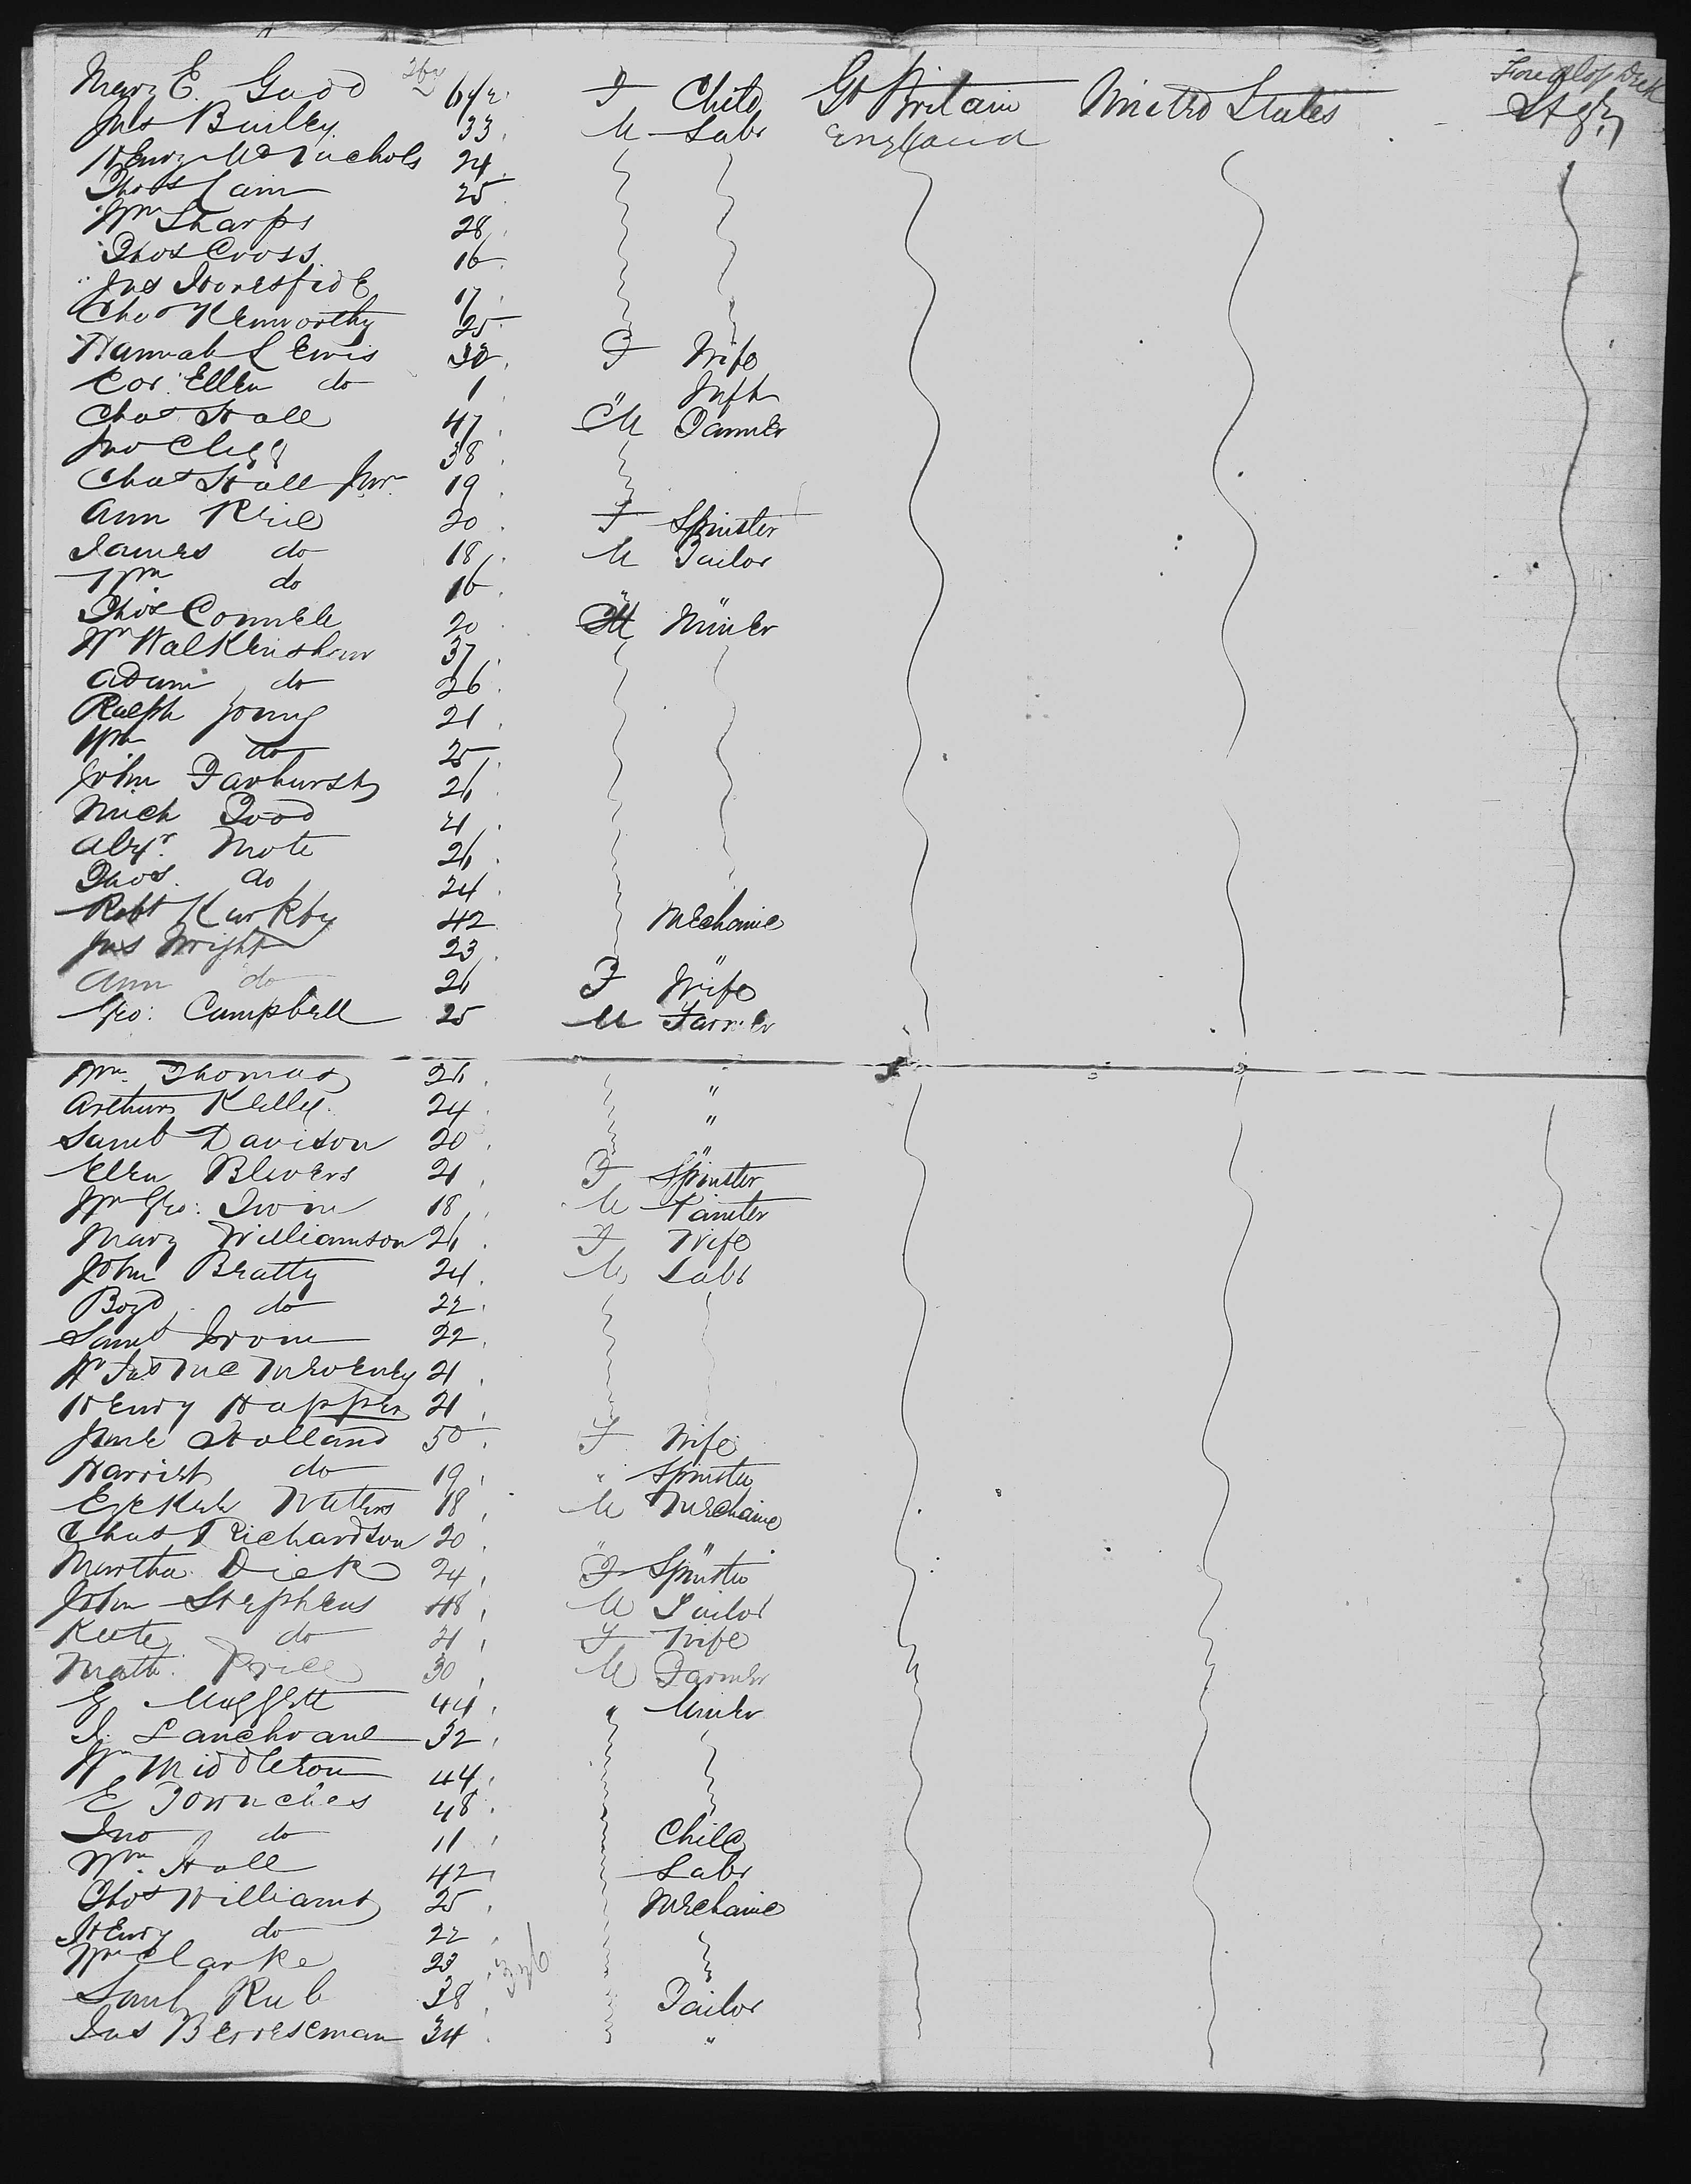 Mary E. Gudd 6 F Child Gt Britain United States Fore Up Deck
Jas Bailey 33 M Labr England Stge
Henry Mc Nichols 24
Thos Cain 25
Wm Sharps 28
Thos Cross 16
Jas 17
Chas Kenworthy 25
Hannah Lewis 30 F Wife
Ellen do 1 " Inft
Chas Hall 47 M Farmer
Jno Clegg 38
Chas Hall Junr 19
Ann 20 F Spinster
James do 18 M Tailor
Wm do 16 " "
Thos 20 M Miner
Wm Walkenshaw 37
Adam do 26
Ralph Young 21
Wm do 25
John Farhurst 26
Mich Todd 21
Alexr Mote 26
Thos do 24
Robt Kirkby 42 Mechanic
Jas Wright 23 "
Ann do 26 F Wife
Geo: Campbell 25 M Farmer
Wm Thomas 26 "
Arthur Kelly 24 "
Saml Davison 20 "
Ellen Blevers 21 F Spinster
Wm Geo: 18 M Painter
Mary Williamson 26 F Wife
John Beatty 24 M Labr
Boyd do 22
Saml 22
21
Henry Happer 21
Jane Holland 50 F Wife
Harriet do 19 " Spinster
Ezekiel Waters 18 M Mechanic
Chas Richardson 20 " "
Martha Dick 24 F Spinster
John Stephens 48 M Tailor
Kate do 21 F Wife
Math: Price 30 M Farmer
44 " Miner
32
Wm Middleton 44
E 48
Jno do 11 Child
Wm Hall 42 Labr
Thos Williams 25 Mechanic
Henry do 22
Wm Clarke 23
Saml Rub 38 Tailor
Jas 34 "